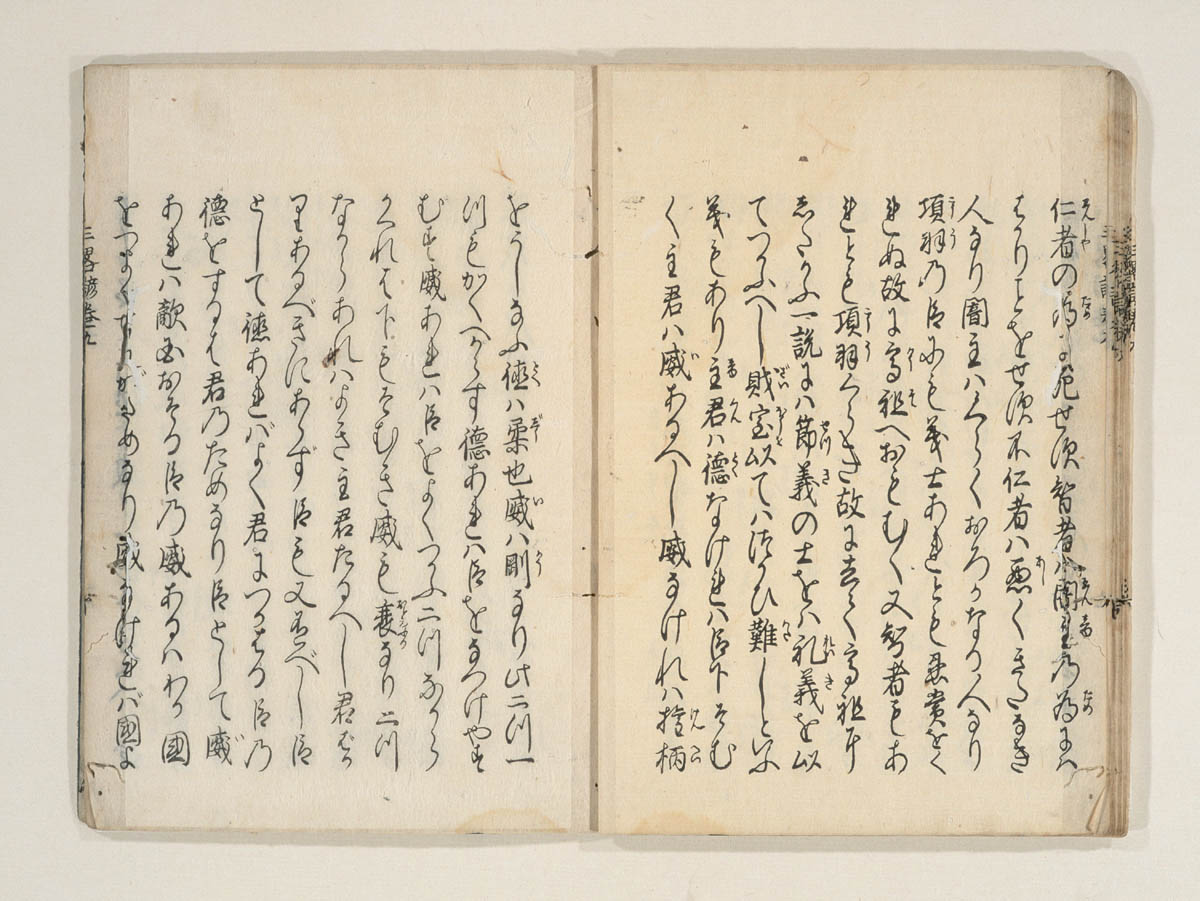 仁者の為に死せず智者ハ闇主の為にハ
はかりことをせず不仁者ハ悪くきたなき
人なり闇主ハくらくおろかなる人なり
項羽乃臣にも義士あれとも恩賞をく
れぬ故に高祖へおもむく又智者もあ
れとも項羽くらき故に去て高祖に
したかふ一説にハ節義の士をハ礼義を以
てつかふへし財宝以てハつかひ難しといふ
義もあり主君ハ徳なけれハ臣下そむ
く主君ハ威あるへし威なけれハ権柄
をうしなふ徳ハ柔也威ハ剛なり此二つ一
つもかくへからす徳あれハ臣をなつけやす
むす威あれハ臣をよくつかふ二つながら
かくれは下もそむき威も衰なり二つ
なからあれハよき主君たるへし君ばか
りあるべきにあらず臣も又有べし臣
として徳あれバよく君につかはる臣乃
徳をするは君乃ためなり臣として威
あれハ敵国おそる臣乃威あるハわか国
をつよくせんがためなり威なけれバ國よ
三略諺巻九